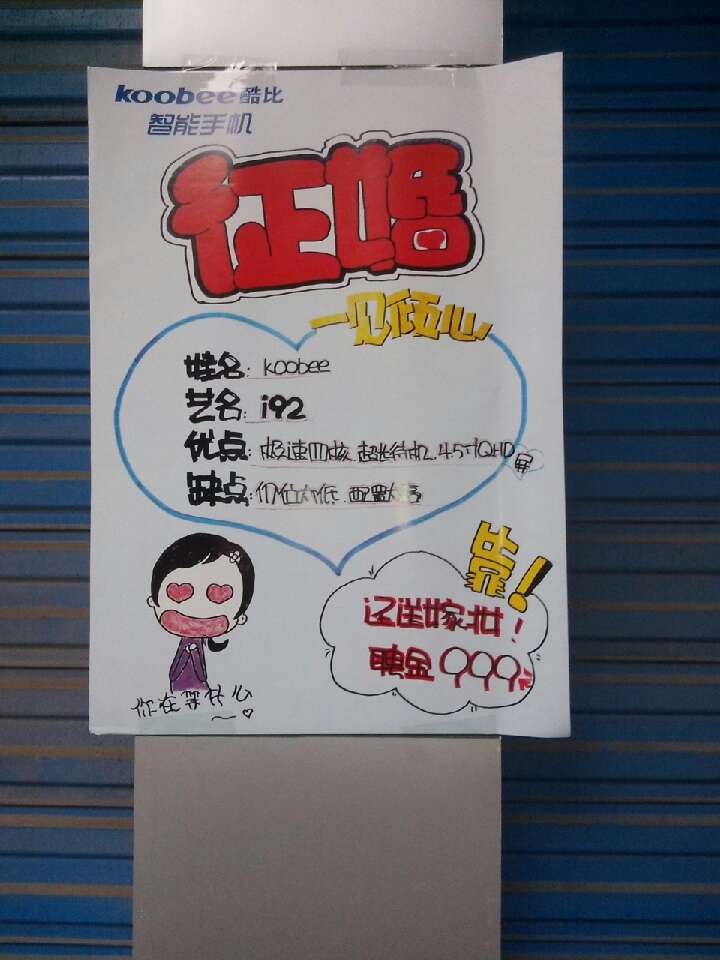 koobee 酷比
智能手机
征婚
一见倾心
姓名: koobee
艺名: i92
优点: 极速四核.超长待机.4.5寸QHD屏
缺点: 价位太低.配置太高
靠!
还送嫁妆!
聘金999
你在等什么